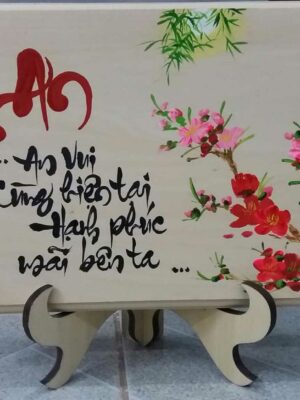 An
... An vui
cùng hiện tại
Hạnh phúc
mãi bên ta ...